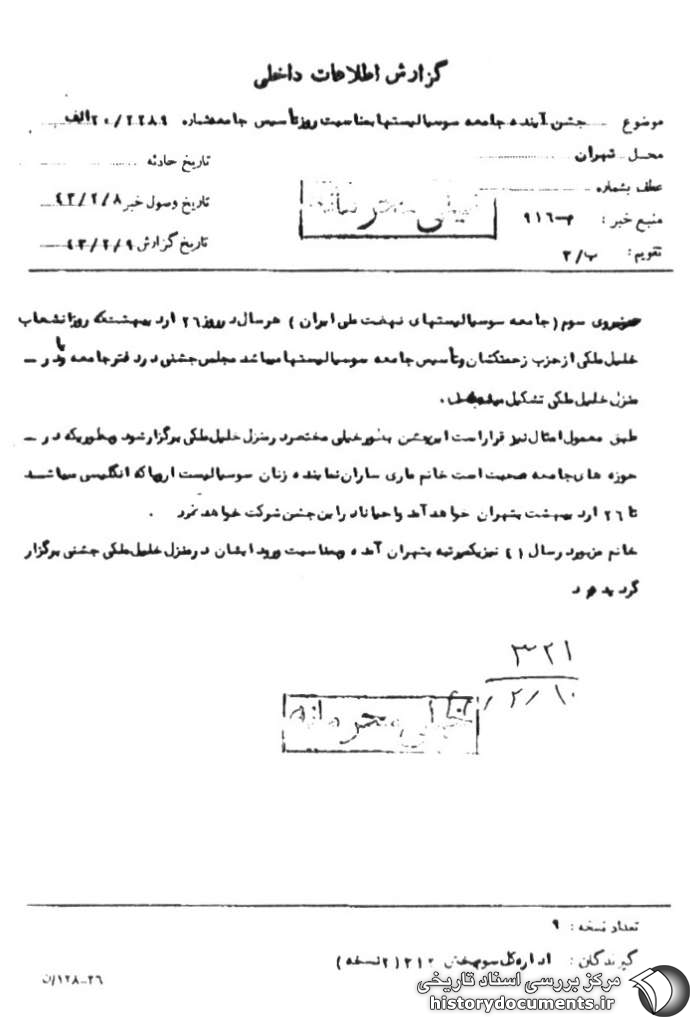 گزارش اطلاعات داخلی
موضوع جشن آینده جامعه سوسیالیستها بمناسبت روز تأسیس جامعه شماره ۲۰/۲۲۸۹الف
محل تهران
تاریخ حادثه
عطف بشماره
خیلی محرمانه
تاریخ وصول خبر ۴۳/۲/۸
منبع خبر : ۹۱۶
تاریخ گزارش ۴۳/۲/۹
تقویم : ب/۲
نیروی سوم (جامعه سوسیالیستهای نهضت ملی ایران ) هر سال در روز ۲۶ اردیبهشت که روز انشعاب
خلیل ملکی از حزب زحمتکشان و تأسیس جامعه سوسیالیستها میباشد مجلس جشنی در دفتر جامعه و یا در ـ
منزل خلیل ملکی تشکیل .
طبق معمول امسال نیز قرار است این جشن بطور خیلی مختصر در منزل خلیل ملکی برگزار شود بطوریکه در ـ
حوزه های جامعه صحبت است خانم ماری ساران نماینده زنان سوسیالیست اروپا که انگلیسی میباشد
تا ۲۶ اردیبهشت بتهران خواهد آمد و احیانا در این جشن شرکت خواهد کرد .
خانم مزبور در سال ۴۱ نیز یکمرتبه بتهران آمده و بمناسبت ورود ایشان در منزل خلیل ملکی جشنی برگزار
گردیده بود
۳۲۱
۴۳/۲/۱۰
خیلی محرمانه
تعداد نسخه : ۹
گیرندگان : اداره کل سوم بخش ۳۱۲ (۲ نسخه )
۲۶ـ۱۲۸/ن
مرکز بررسی اسناد تاریخی
historydocuments.ir